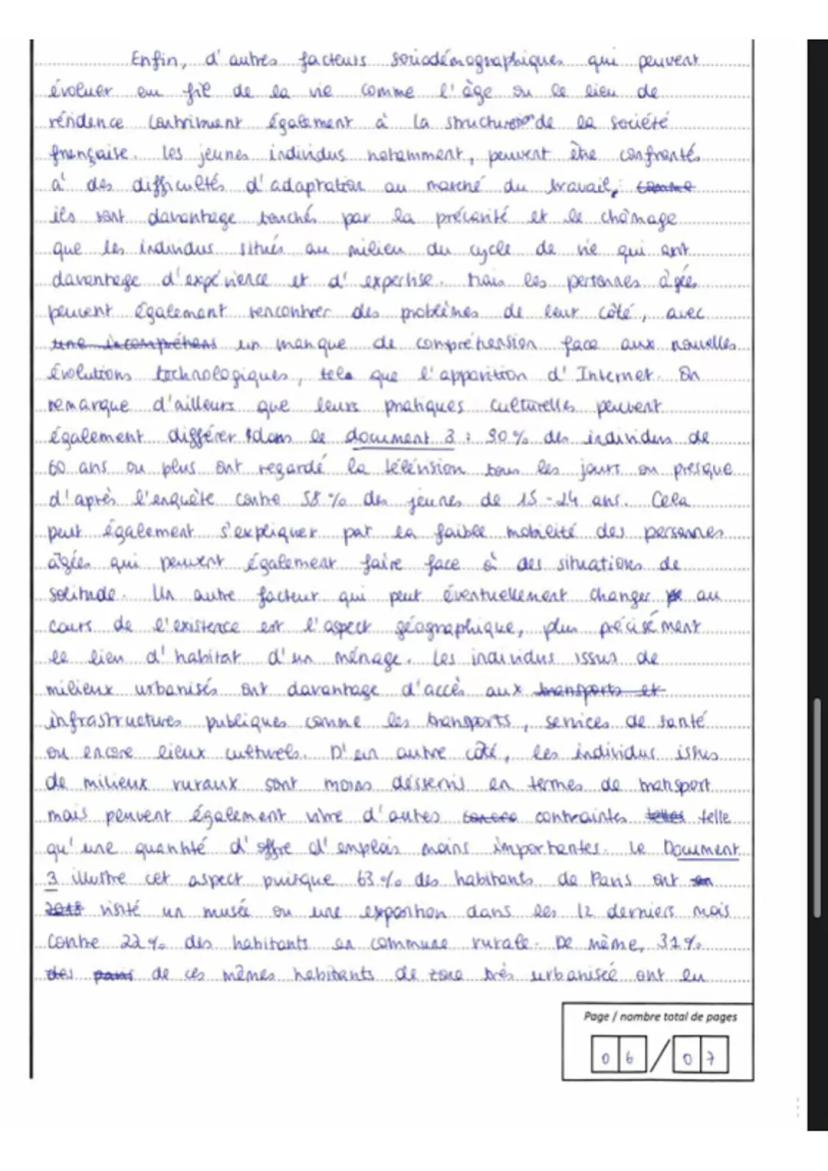 Enfin, d'autres facteurs sociodémographiques qui peuvent
évoluer au fil de la vie comme l'âge ou le lieu de
résidence contribuent également à la structure de la société
française. Les jeunes individus notamment, peuvent être confrontés
à des difficultés d'adaptation au marché du travail, comme
ils sont davantage touchés par la précarité et le chômage
que les individus situés au milieu du cycle de vie qui ont
davantage d'expérience et d'expertise. Mais les personnes âgées
peuvent également rencontrer des problèmes de leur côté, avec
une incompréhens un manque de compréhension face aux nouvelles
évolutions technologiques, tels que l'apparition d'Internet. On
remarque d'ailleurs que leurs pratiques culturelles peuvent
également différer dans le document 3 : 90% des individus de
60 ans ou plus ont regardé la télévision tous les jours ou presque
d'après l'enquête contre 58% des jeunes de 15-24 ans. Cela
peut également s'expliquer par la faible mobilité des personnes
âgées qui peuvent également faire face à des situations de
solitude. Un autre facteur qui peut éventuellement changer au
cours de l'existence est l'aspect géographique, plus précisément
le lieu d'habitat d'un ménage. Les individus issus de
milieux urbanisés ont davantage d'accès aux transports et
infrastructures publiques comme les transports, services de santé
ou encore lieux culturels. D'un autre côté, les individus issus
de milieux ruraux sont moins désservis en termes de transport
mais peuvent également vivre d'autres contraintes telles telle
qu'une quantité d'offre d'emplois moins importantes. Le Document
3 illustre cet aspect puisque 63% des habitants de Paris ont en
2018 visité un musée ou une exposition dans les 12 derniers mois
contre 22% des habitants en commune rurale. De même, 31%
des de ces mêmes habitants de zone très urbanisée ont lu
Page / nombre total de pages
06/07